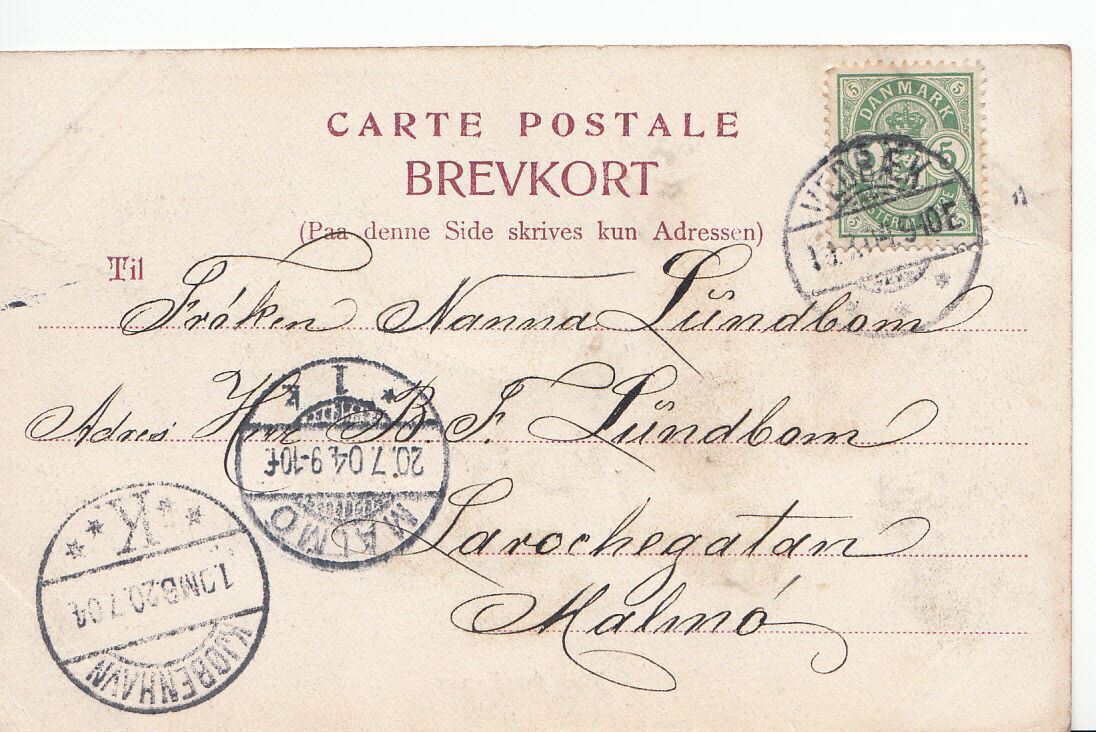 CARTE POSTALE
BREVKORT
(Paa denne Side skrives kun Adressen)
DANMARK
5 5
5 5
5 5
VEDBÆK
9-10E
Til
Fröken Nanna Lündbom
Adres Herr B. F. Lündbom
Larochegatan
Malmö
1
20.7.04.9-10F.
MALMÖ
K
1.OMB 20.7.04.
KJØBENHAVN